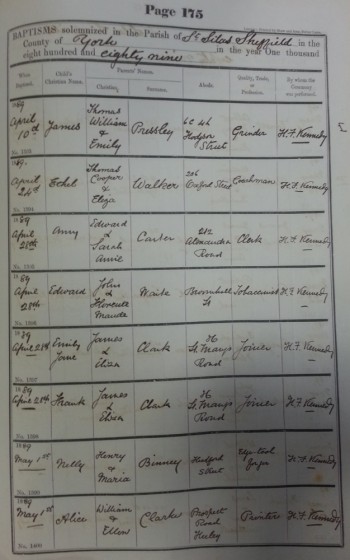 Page 175
BAPTISMS solemnized in the Parish of St Silas Sheffield in the
County of York in the year One thousand
eight hundred and eighty nine
When Baptized. Child's Christian Name. Parents' Names. Abode. Quality, Trade, or Profession. By whom the Ceremony was performed.
Christian. Surname.
1889
April 10th James Thomas William & Emily Pressley Hodgson Street Grinder H. F. Kennedy
1889
April 24th Ethel Thomas Cooper & Eliza Walker Street Coachman H. F. Kennedy
1889
April 28th Amy Edward & Sarah Annie Carter 212 Alexandra Road Clerk H. F. Kennedy
1889
April 28th Edward John & Florence Maude Broomhall St Tobacconist H. F. Kennedy
1889
April 28th Emily Jane James & Eliza Clark St Marys Road Joiner H. F. Kennedy
1889
April 28th Frank James & Eliza Clark St Marys Road Joiner H. F. Kennedy
1889
May 1st Nelly Henry & Maria Binney Street Edge-tool H. F. Kennedy
1889
May 1st Alice William & Ellen Clarke Prospect Road Heeley Painter H. F. Kennedy
No. 1400